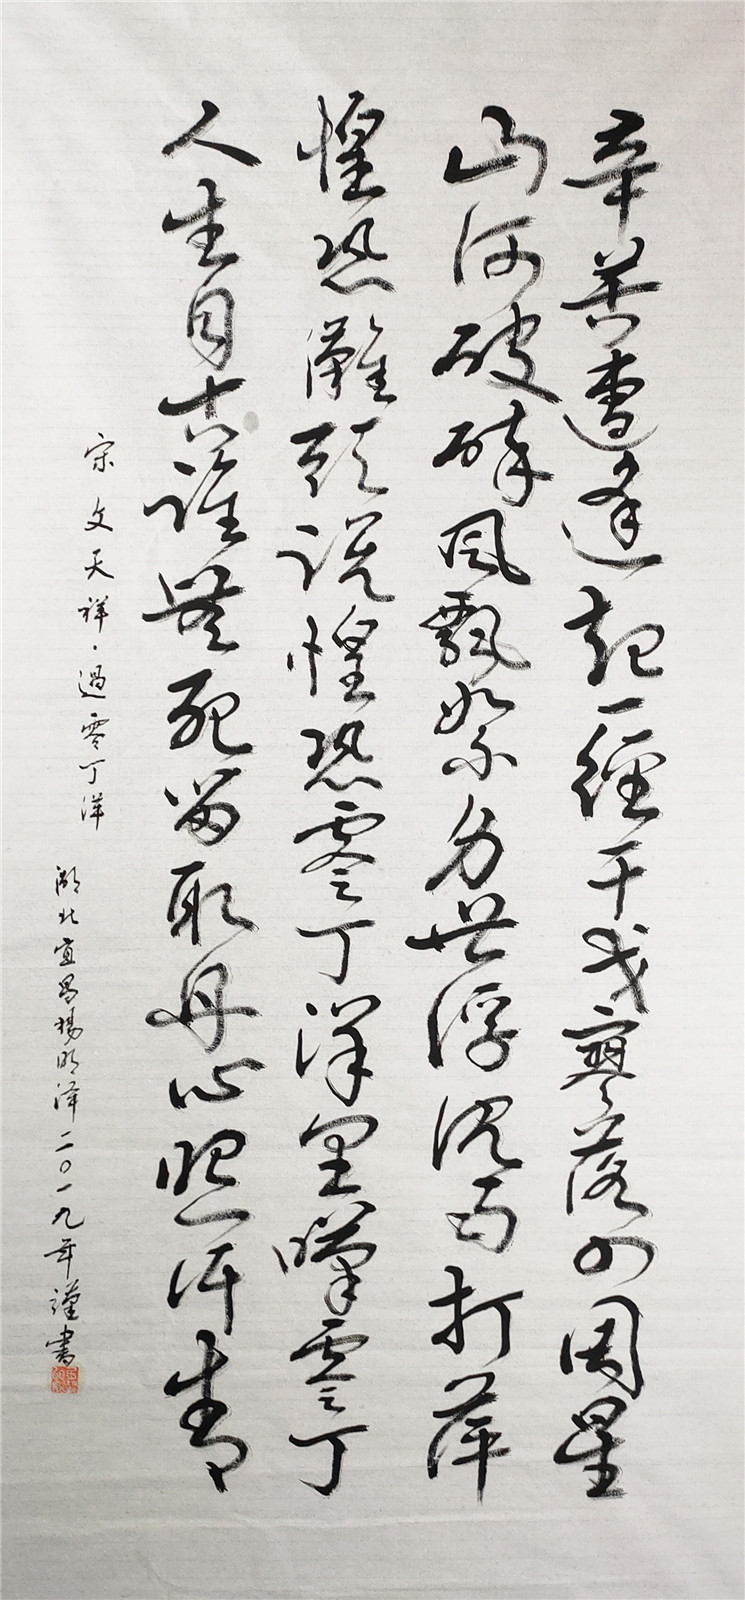 辛苦遭逢起一經干戈寥落四周星
山河破碎風飄絮身世浮沉雨打萍
惶恐灘頭説惶恐零丁洋里嘆零丁
人生自古誰無死留取丹心照汗青
宋文天祥·過零丁洋
湖北宜昌楊明澤二〇一九年謹書